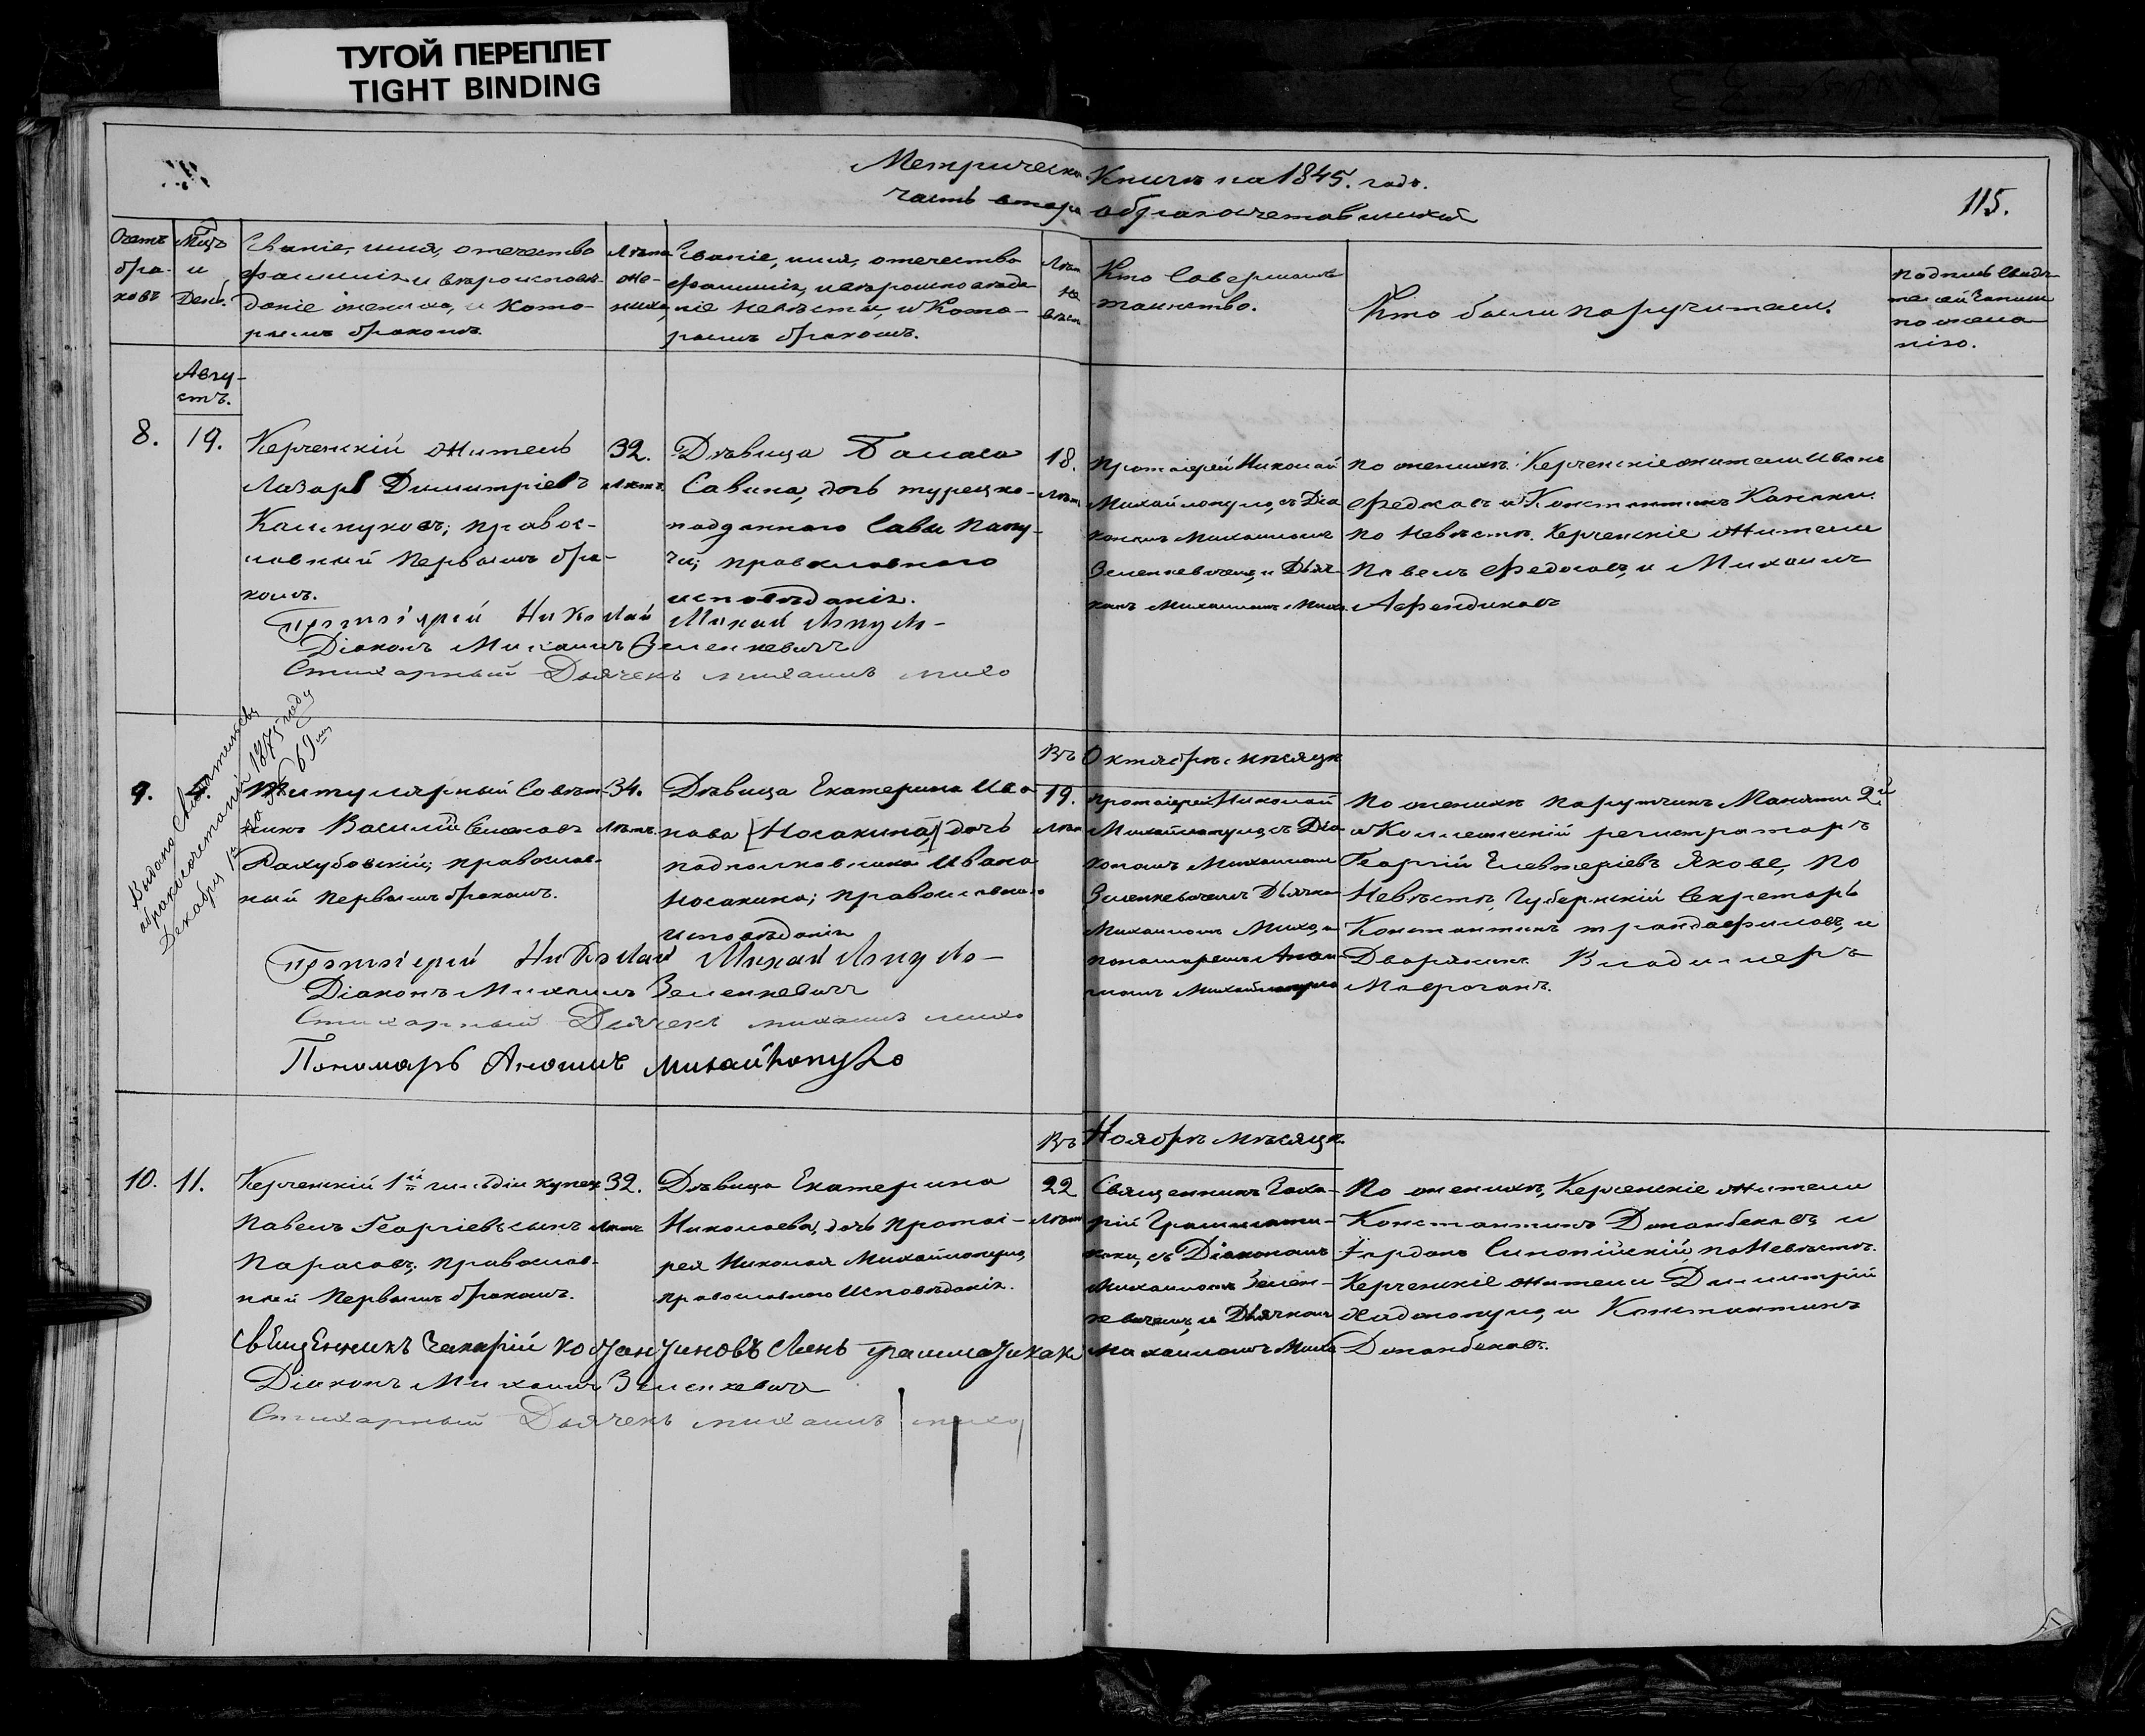 ТУГОЙ ПЕРЕПЛЕТ
TIGHT BINDING
Метрическ. Книга на 1845. годъ.
часть втора обракосчетавшихся
115.
Счетъ
бра-
ковъ
Мцъ
и
День.
Званіе, имя, отечество
фамилія и вѣроисповѣ-
даніе жениха, и кото-
рымъ бракомъ.
Лѣта
же-
ниха,
Званіе, имя, отечество
фамилія, и вѣроисповѣда
ніе невѣсты, и Кото-
рымъ бракомъ.
Лѣт
не
вѣст
Кто Совершалъ
таинство.
Кто были поручители.
Подпись Свидѣ-
телей Записи
по жела-
нію.
Авгу-
стъ.
8.
19.
Керченскій житель
Лазарь Димитріевъ
Калпуковъ; правос-
лавный первымъ бра-
комъ.
32.
Лѣтъ
Дѣвица
Савина, дочь турецко-
подданнаго Савы Папу-
чи; православнаго
исповѣданія.
18.
Лѣт
Протоіерей Николай
Михайлопуло, съ Діа
кономъ Михаиломъ
Зеленкевичемъ, и Дьяч-
комъ Михаиломъ Михо.
по женихѣ: Керченскіе жители Иванъ
Федковъ и Константинъ Канаки.
по Невѣстѣ. Керченскіе Жители
Павелъ Федосовъ, и Михаилъ
Афендиковъ
Протоіерей Николай Михайлопуло-
Діаконъ Михаилъ Зеленкевичъ
Стихарный Дьячекъ михаилъ михо
Выдано Свидѣтельство
обракосочетаніи 1875 году
Декабря 1го за № 69мъ
Въ Октябрѣ мѣсяцѣ
9.
Титулярный Совѣт-
никъ Василій Семеновъ
Рахубовскій; православ-
ный первымъ бракомъ.
34.
Лѣтъ.
Дѣвица Екатерина Ива
нова [Носакина,] дочь
подполковника Ивана
Носакина; православнаго
исповѣданія
19.
Лѣт
Протоіерей Николай
Михайлопуло, съ Діа
кономъ Михаиломъ
Зеленкевичемъ Дьячком
Михаиломъ Михо, и
пономаремъ Анан-
іемъ Михайлопуло
По женихѣ поручикъ Маняти 2й
и Коллежскій регистраторъ
Георгій Елевтеріевъ Якове, по
Невѣстѣ, Губернскій Секретарь
Константинъ трандафиловъ, и
Дворянинъ Владимеръ
Маврогани.
Протоіерей Николай Михайлопуло-
Діаконъ Михаилъ Зеленкевичъ
Стихарный Дьячекъ михаилъ михо
Пономарь Ананій Михайлопуло
Въ Ноябрѣ мѣсяцѣ.
10.
11.
Керченскій 1й гильдіи купец
Павелъ Георгіевъ сынъ
Парасовъ, православ-
ный первымъ бракомъ.
32.
Лѣтъ
Дѣвица Екатерина
Николаева, дочь протоі-
рея Николая Михайлопуло,
православнаго Исповѣданія.
22
Лѣт
Священникъ Заха-
рій Граммати-
каки, съ Діакономъ
Михаиломъ Зелен-
кевичемъ, и Дьячкомъ
михаиломъ Михо
По женихѣ, Керченскіе жители
Константинъ Дмамбековъ и
Іорданъ Синопійскій, по Невѣстѣ.
Керченскіе жители Димитрій
Хадопуло, и Константинъ
Дмамбековъ.
Священникъ Захарій Константиновъ сынъ граматикаки
Діаконъ Михаилъ Зеленкевичъ
Стихарный Дьячекъ михаилъ михо